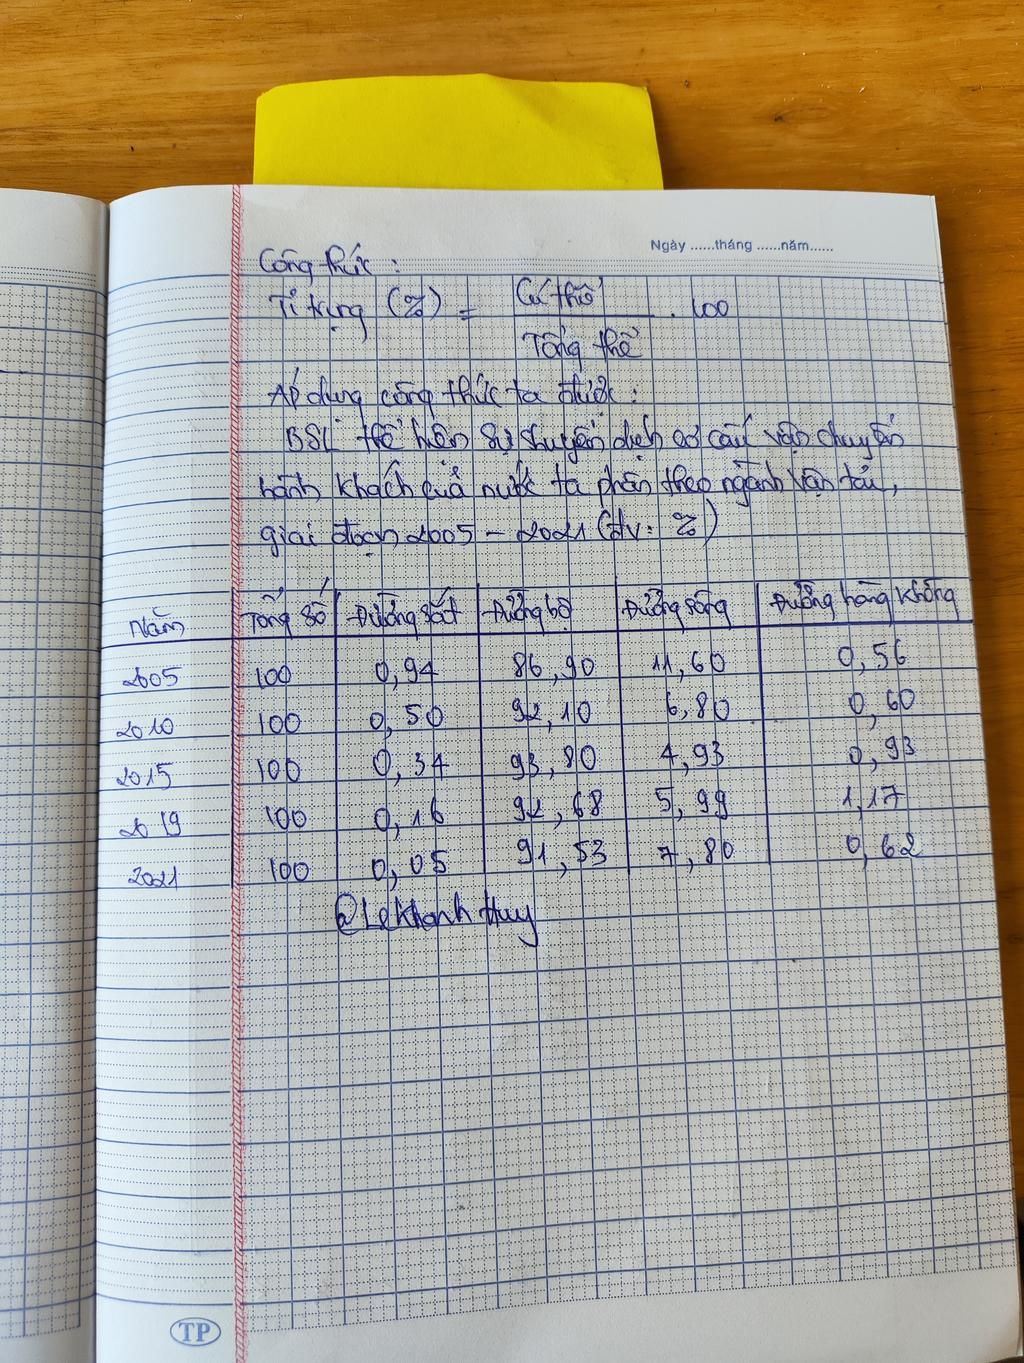 Ngày ......tháng ......năm......
Công thức :
Tỉ trọng (%) = Cá thể / Tổng thể . 100
Áp dụng công thức ta được :
BSL thể hiện sự chuyển dịch cơ cấu vận chuyển
hành khách của nước ta phân theo ngành vận tải,
giai đoạn 2005 - 2021 (đv: %)
Năm Tổng số Đường sắt Đường bộ Đường sông Đường hàng không
2005 100 0,94 86,90 11,60 0,56
2010 100 0,50 92,10 6,80 0,60
2015 100 0,34 93,80 4,93 0,93
2019 100 0,16 92,68 5,99 1,17
2021 100 0,05 91,53 7,80 0,62
@Lekhanh Huy
TP